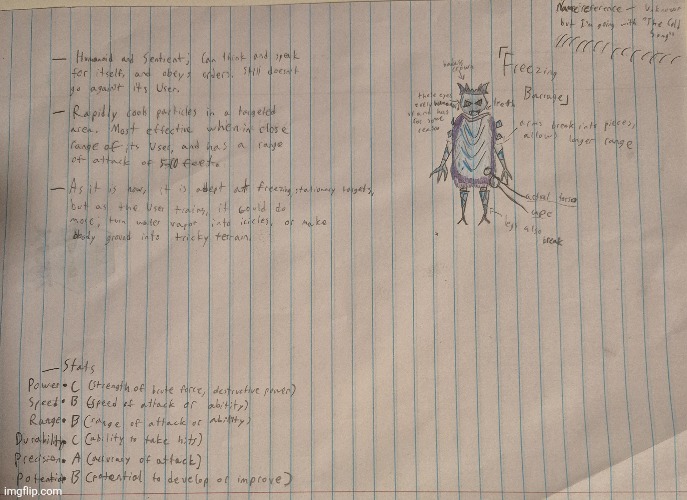 Name reference - Unknown
but I'm going with "The Cold
Song"
「Freezing
Barrage」
— Humanoid and Sentient; Can think and speak
for itself, and obeys orders. Still doesn't
go against its User.
— Rapidly cools particles in a targeted
area. Most effective when in close
range of its User, and has a range
of attack of feet.
— As it is now, it is adept at freezing stationary targets,
but as the User trains, it could do
more, turn water vapor into icicles, or make
ground into tricky terrain.
crown
these eyes
for some
reason
teeth
arms break into pieces,
allows longer range
actual torso
legs also
break
— Stats
Power • C (strength of brute force, destructive power)
Speed • B (speed of attack or ability)
Range • B (range of attack or ability)
Durability • C (ability to take hits)
Precision • A (accuracy of attack)
Potential • B (potential to develop or improve)
imgflip.com